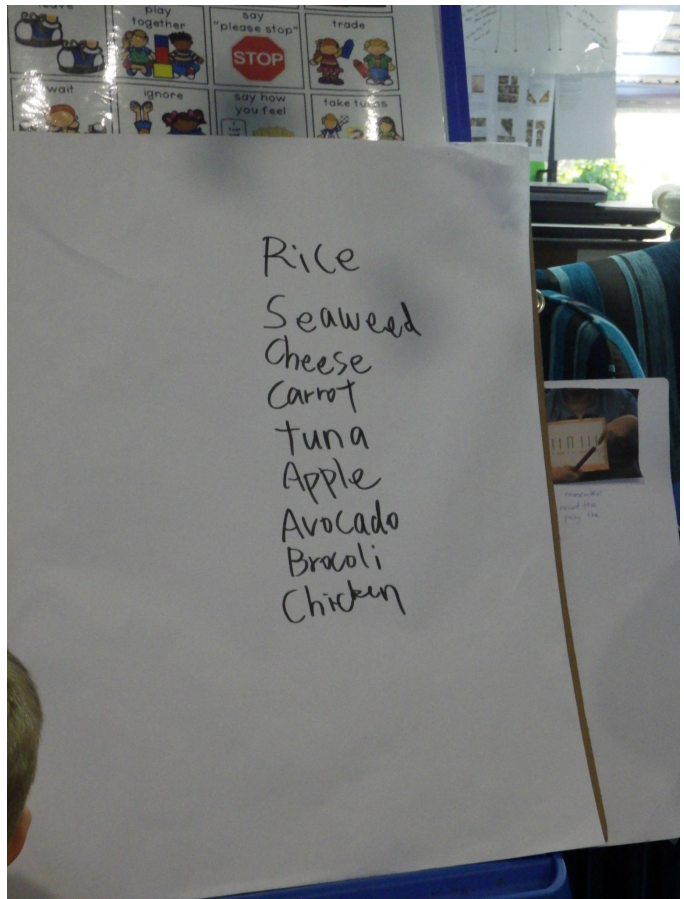 play together
say "please stop"
trade
STOP
wait
ignore
say how you feel
take turns
Rice
Seaweed
Cheese
Carrot
tuna
Apple
Avocado
Brocoli
Chicken
remember
read the